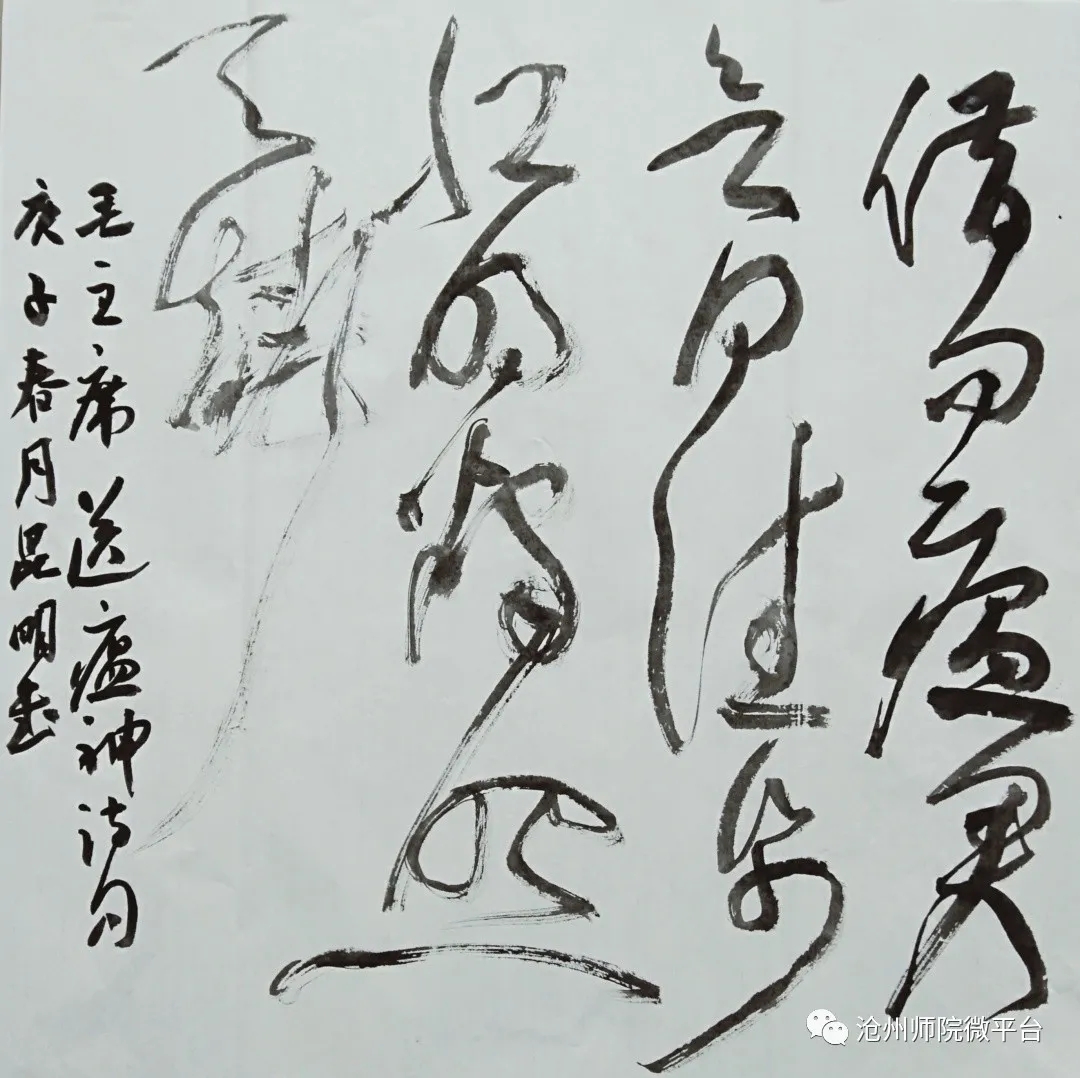 借问瘟君
欲何往纸
船明烛照
天烧
毛主席送瘟神诗句
庚子春月昆明书
沧州师院微平台